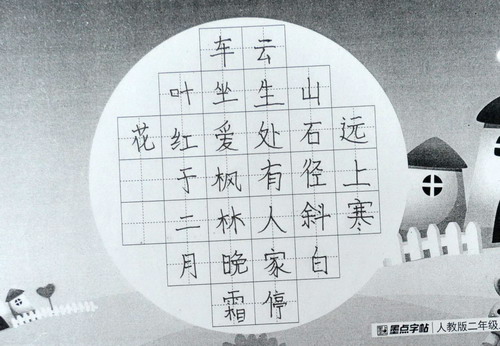 远上寒
山石径斜白
云生处有人家停
车坐爱枫林晚霜
叶红于二月
花
墨点字帖 人教版二年级